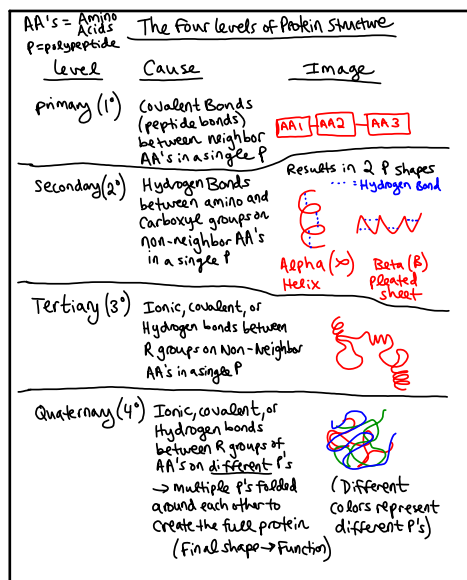 AA's = Amino Acids
P=polypeptide
The Four Levels of Protein Structure
Level
Cause
Image
primary (1°)
Covalent Bonds
(peptide bonds)
between neighbor
AA's in a single P
AA1
AA2
AA3
Secondary (2°)
Hydrogen Bonds
between amino and
Carboxyl groups on
non-neighbor AA's
in a single P
Results in 2 P shapes
---=Hydrogen Bond
Alpha (∝)
Helix
Beta (B)
pleated
sheet
Tertiary (3°)
Ionic, covalent, or
Hydrogen bonds between
R groups on Non-Neighbor
AA's in a single P
Quaternary (4°)
Ionic, covalent, or
Hydrogen bonds
between R groups of
AA's on different P's
→ multiple P's folded
around each other to
create the full protein
(Final shape → Function)
(Different
colors represent
different P's)